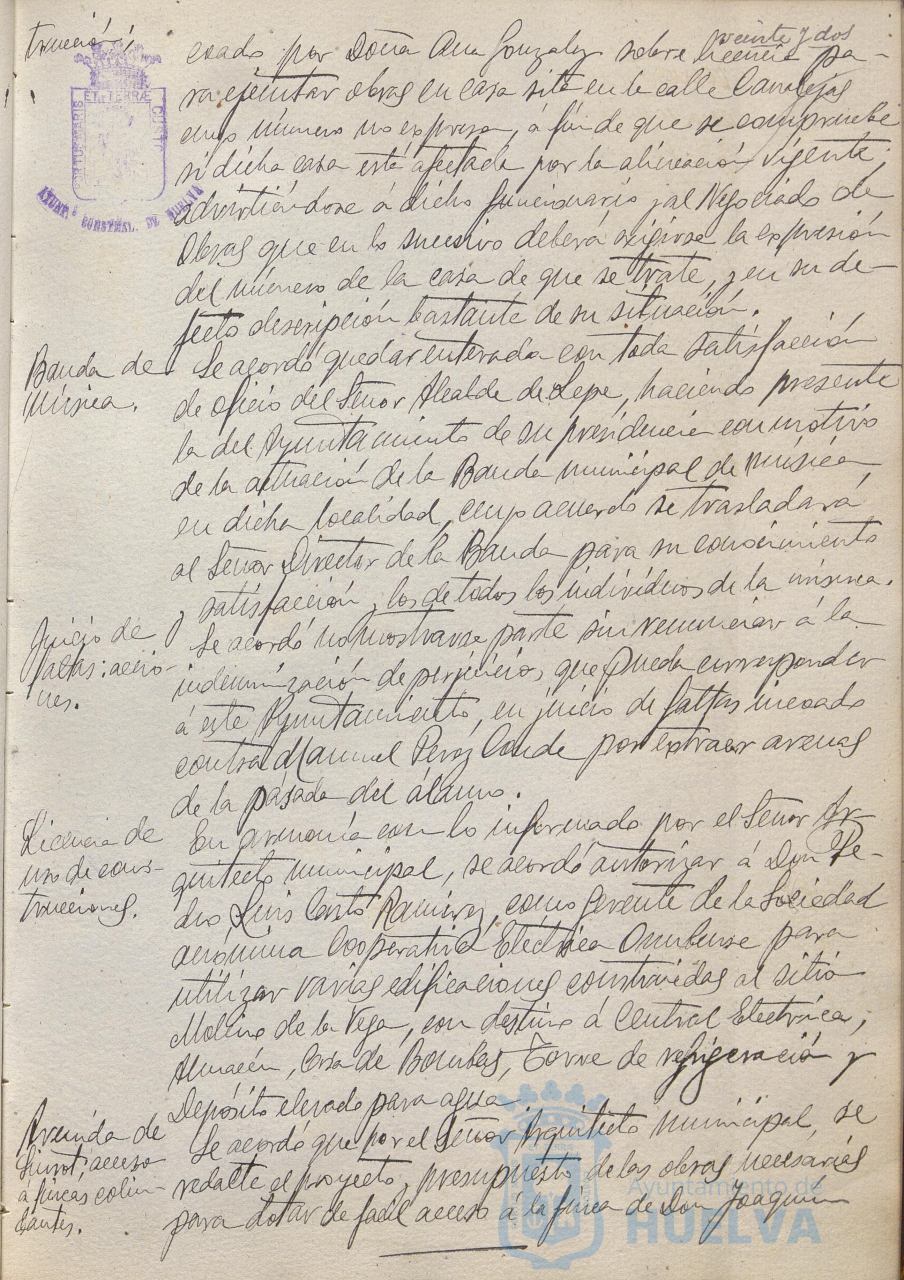 veinte y dos
trucción;
coado por Doña Ana Gonzalez sobre licencia pa-
ra ejecutar obras en casa sita en la calle Canalejas
cuyo número no expresa, á fin de que se compruebe
si dicha casa está afectada por la alineación vigente;
advirtiéndose á dicho funcionario y al Negociado de
Obras que en lo sucesivo deberá exigirse la expresión
del número de la casa de que se trate, y en su de-
fecto descripción bastante de su situación.
Banda de
Música.
Se acordó quedar enterada con toda satisfacción
de oficio del Señor Alcalde de Lepe, haciendo presente
la del Ayuntamiento de su presidencia con motivo
de la actuación de la Banda municipal de música
en dicha localidad, cuyo acuerdo se trasladará
al Señor Director de la Banda para su conocimiento
y satisfacción y los de todos los individuos de la misma.
Juicio de
faltas: accio-
nes.
Se acordó no mostrarse parte sin renunciar á la
indemnización de perjuicios que pueda corresponder
á este Ayuntamiento, en juicio de faltas incoado
contra Manuel Peréz Conde por extraer arenas
de la pasada del álamo.
Licencia de
uso de cons-
trucciones.
En armonía con lo informado por el Señor Ar-
quitecto municipal, se acordó autorizar á Don Pe-
dro Luis Casto Ramirez, como gerente de la Sociedad
anónima Cooperativa Electrica Onubense para
utilizar varias edificaciones construidas al sitio
Molino de la Vega, con destino á Central Electrica,
Almacén, Casa de Bombas, Torre de refrigeración y
Depósito elevado para agua.
Avenida de
acceso
á fincas colin-
dantes.
Se acordó que por el Señor Arquitecto municipal, se
redacte el proyecto y presupuesto de las obras necesarias
para dotar de facil acceso á la finca de Don Joaquin
ET TERRÆ
CUSTODIA
PORTUS MARIS
AYUNT.º CONSTNAL. DE HUELVA
Ayuntamiento de
HUELVA